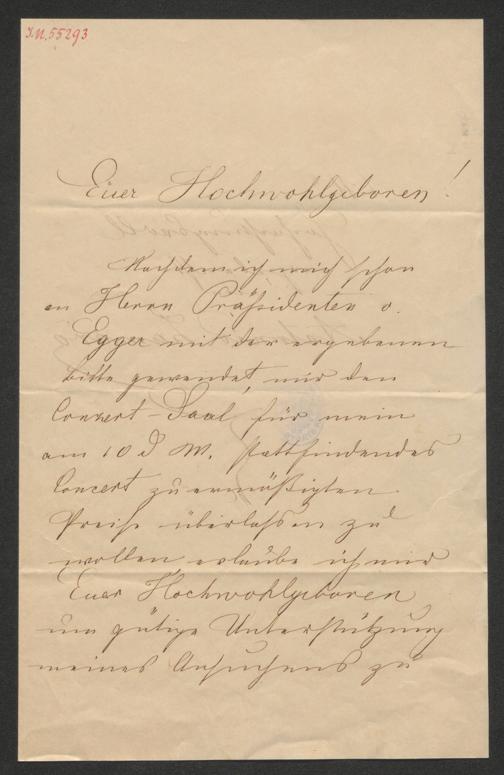 I.N. 55293
Euer Hochwohlgeboren!
Nachdem ich mich schon
an Herrn Präsidenten v.
Egger mit der ergebenen
Bitte gewendet, mir den
Concert-Saal für mein
am 10 d. M. stattfindendes
Concert zu ermäßigten
Preise überlassen zu
wollen erlaube ich mir
Euer Hochwohlgeboren
um gütige Unterstützung
meines Ansuchens zu